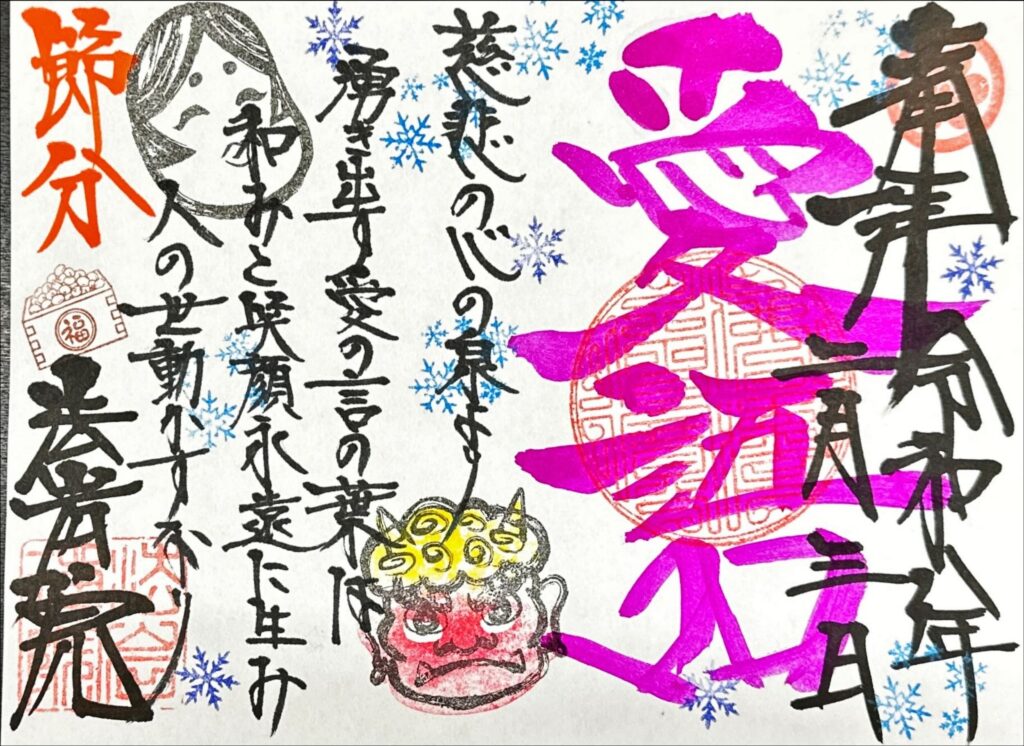 奉拝 令和八年
二月三日
愛語
慈悲の心の泉より
湧き出す愛の言の葉は
和みと咲顔永遠に生み
人の世動かす
節分
福